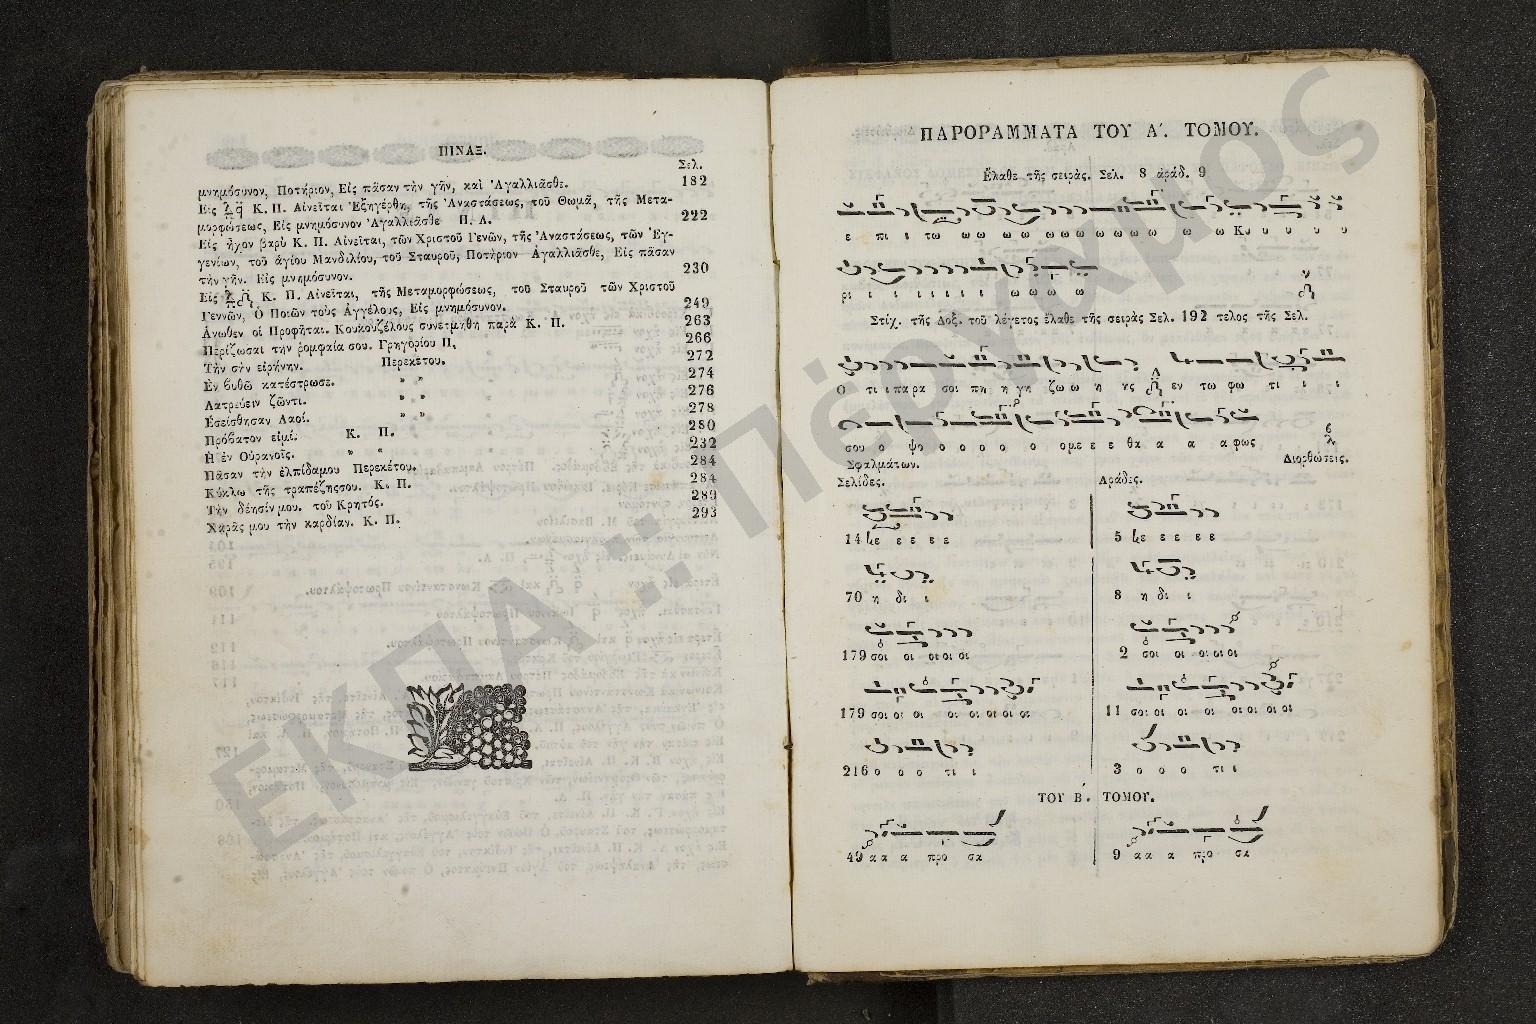 ΠΙΝΑΞ.
Σελ.
μνημόσυνον, Ποτήριον, Εἰς πᾶσαν τὴν γῆν, καὶ Ἀγαλλιᾶσθε. 182
Εἰς Κ. Π. Αἰνεῖται Ἐξηγέρθη, τῆς Ἀναστάσεως, τοῦ Θωμᾶ, τῆς Μετα-
μορφώσεως, Εἰς μνημόσυνον Ἀγαλλιᾶσθε Π. Λ. 222
Εἰς ἦχον βαρὺ Κ. Π. Αἰνεῖται, τῶν Χριστοῦ Γενῶν, τῆς Ἀναστάσεως, τῶν Ἐγ-
γενίων, τοῦ ἁγίου Μανδιλίου, τοῦ Σταυροῦ, Ποτήριον Ἀγαλλιᾶσθε, Εἰς πᾶσαν
τὴν γῆν. Εἰς μνημόσυνον. 230
Εἰς Κ. Π. Αἰνεῖται, τῆς Μεταμορφώσεως, τοῦ Σταυροῦ τῶν Χριστοῦ
Γεννῶν, Ὁ Ποιῶν τοὺς Ἀγγέλους, Εἰς μνημόσυνον. 249
Ἄνωθεν οἱ Προφῆται. Κουκουζέλους συνετμήθη παρὰ Κ. Π. 263
Περίζωσαι τὴν ῥομφαία σου. Γρηγορίου Π. 266
Τὴν σὴν εἰρήνην. Περεκέτου. 272
Ἐν βυθῷ κατέστρωσε. » » 274
Λατρεύειν ζῶντι. » » 276
Ἐσείσθησαν Λαοί. » » 278
Πρόβατον εἰμί. Κ. Π. 280
Ἡ ἐν Οὐρανοῖς. » » 232
Πᾶσαν τὴν ἐλπίδαμου Περεκέτου. 284
Κύκλῳ τῆς τραπέζησσου. Κ. Π. 284
Τὴν δέησίν μου. τοῦ Κρητός. 289
Χαρᾶς μου τὴν καρδίαν. Κ. Π. 293
ΠΑΡΟΡΑΜΜΑΤΑ ΤΟΥ Α΄. ΤΟΜΟΥ.
Ἔλαθε τῆς σειρὰς. Σελ. 8 ἀράδ. 9
ε πι ι τω ω ω ω ω ω ω ω ω ω ω ω ω Κυ υ υ υ υ
ρι ι ι ι ι ι ι ι ω ω ω ω
Στίχ. τῆς Δοξ. τοῦ λέγετος ἔλαθε τῆς σειρὰς Σελ. 192 τελος τῆς Σελ.
Ο τι ι παρα σοι πη η γη ζω ω η ης εν τω φω τι ι ι
σου ο ψο ο ο ο ο ο ομε ε ε θα α α α φως
Σφαλμάτων. Διορθώσεις.
Σελίδες. Ἀράδες.
14 με ε ε ε ε 5 με ε ε ε ε
70 η δι ι 8 η δι ι
179 σοι οι οι οι οι 2 σοι οι οι οι οι
179 σοι οι οι οι οι οι οι οι 11 σοι οι οι οι οι οι οι οι
216 ο ο ο τι ι 3 ο ο ο τι ι
ΤΟΥ Β΄. ΤΟΜΟΥ.
49 α α α προ σα 9 α α α προ σα
ΕΚΠΑ :: Πέργαμος